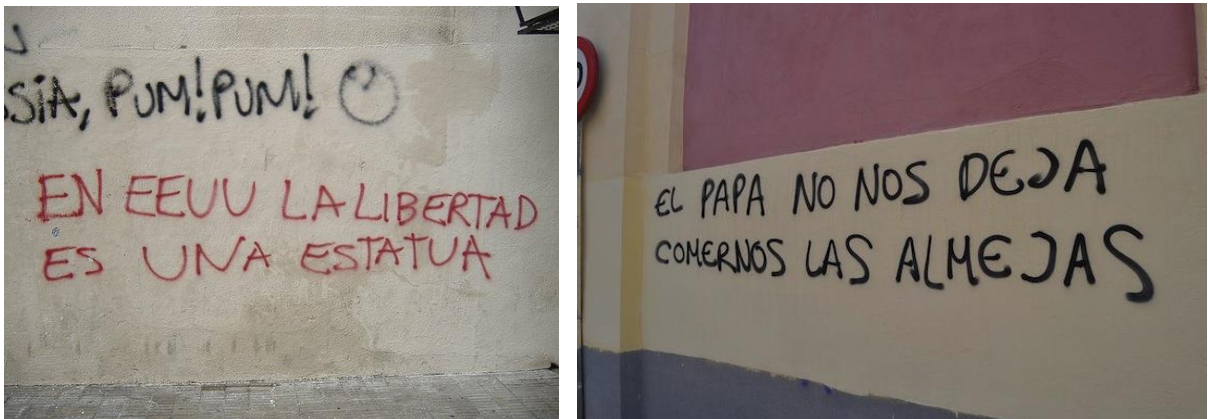 SIA, PUM! PUM!
EN EEUU LA LIBERTAD
ES UNA ESTATUA
EL PAPA NO NOS DEJA
COMERNOS LAS ALMEJAS